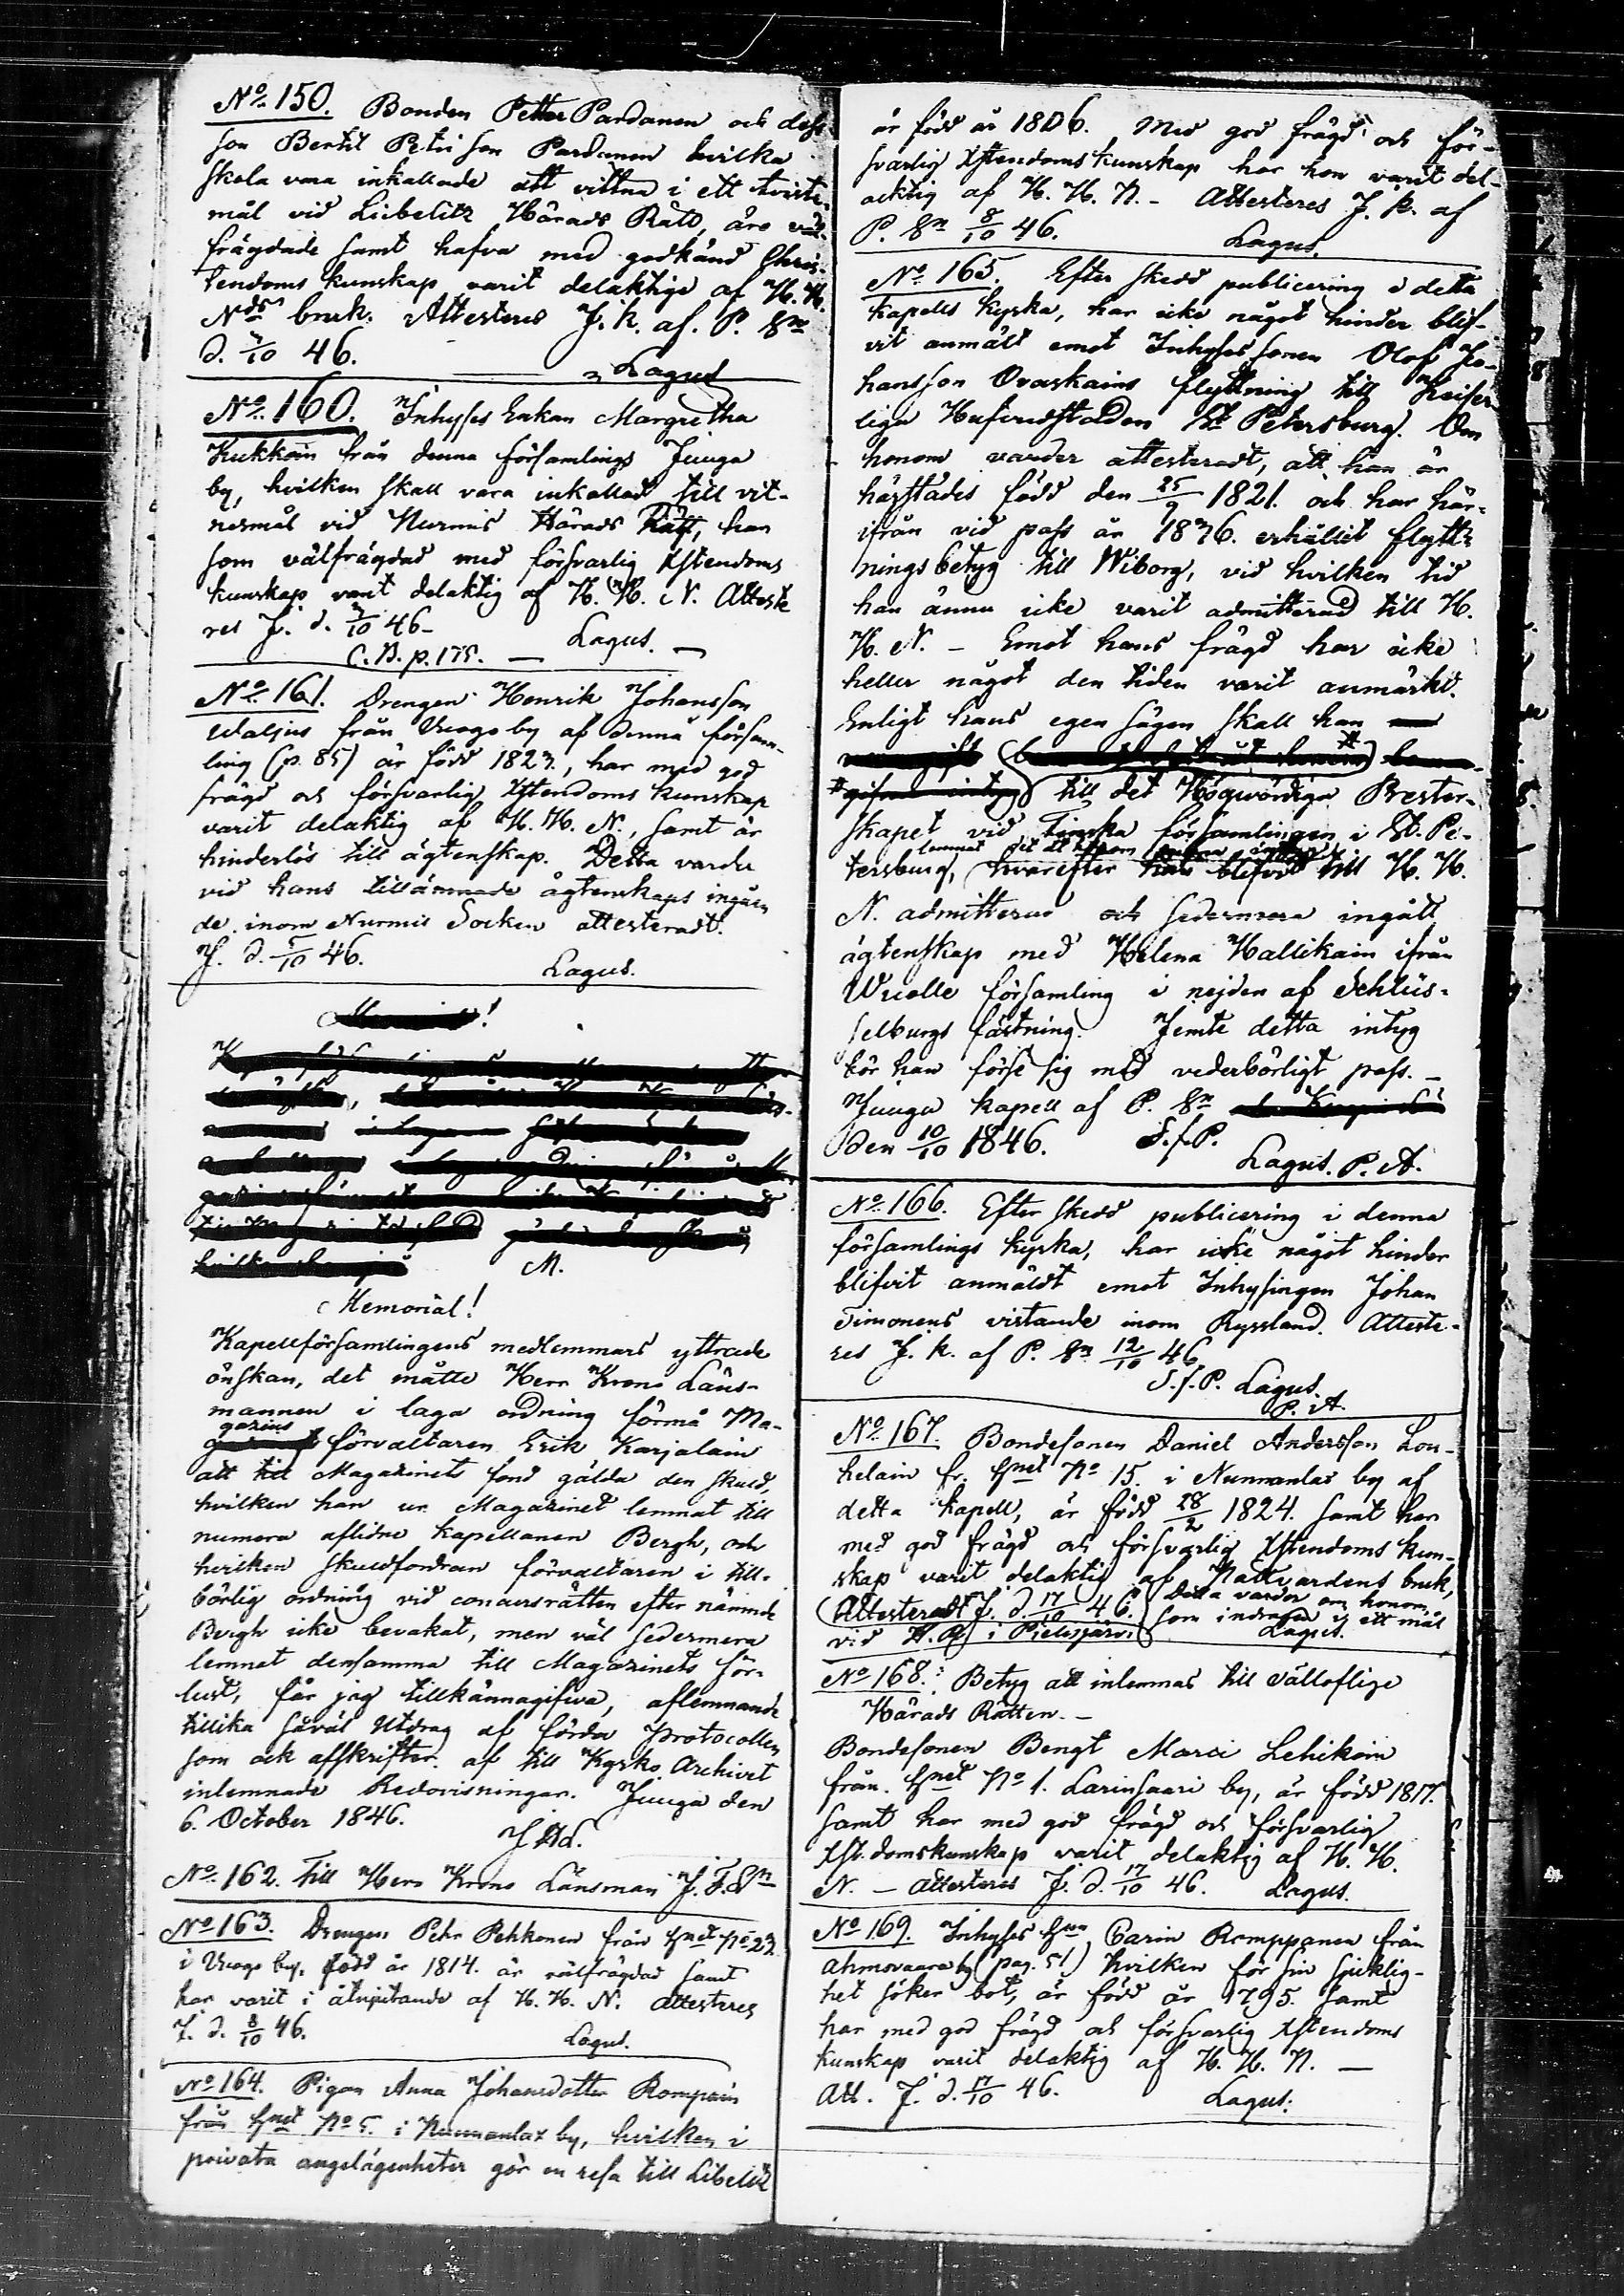 No 150. Bonden Petter Pardanen och dess
son Bertil Petri son Pardanen hvilka
skola vara inkallade att vittna i ett tviste-
mål vid Liebelitz Härads Rätt, äro väl-
frägdade samt hafva med godkänd Chris-
tendoms kunskap varit delaktige af H. H.
Nds bruk. Attesteres J. k. af P. Sn
d. 2/10 46.
Lagus
No 160. Inhyses Enkan Margretha
Kukkoin från denna församlings Juuga
by, hvilken skall vara inkallad till vit-
nesmål vid Nurmis Härads Rätt, har
som välfrägdad med försvarlig Xstendoms
kunskap varit delaktig af H. H. N. Atteste
res J. d. 2/10 46-
C. B. p. 175. — Lagus. —
No 161. Drengen Henrik Johansson
Waljus från Vuogo by af denna försam-
ling (p. 85) är född 1823, har med god
frägd och försvarlig Xstendoms kunskap
varit delaktig af H. H. N., samt är
hinderlös till ägtenskap. Detta varder
vid hans tillämnade ägtenskaps ingåen
de inom Nurmis Socken attesteradt.
J. d. 5/10 46.
Lagus.
M.
Memorial!
Kapellförsamlingens medlemmars yttrade
önskan, det måtte Herr Krono Läns-
mannen i laga ordning förmå Ma-
gazins förvaltaren Erik Karjalain
att till Magazinets fond gälda den skuld,
hvilken han ur Magazinet lemnat till
numera aflidne kapellanen Bergh, och
hvilken skuldfordran förvaltaren i till-
börlig ordning vid concursrätten efter nämnde
Bergh icke bevakat, men väl sedermera
lemnat densamma till Magazinets för-
lust, får jag tillkännagifva, aflemnande
tillika såväl Utdrag af förda Protocollen
som ock affskrifter af till Kyrko Archivet
inlemnade Redovisningar. Juuga den
6. October 1846.
No 162. Till Herr Krono Länsman J. F. Sn
No 163. Drengen Pehr Pehkonen från hmet No 23
i Vuogo by, född år 1814. är välfrägdad samt
har varit i åtnjutande af H. H. N. Attesteres
J. d. 8/10 46.
Lagus.
No 164. Pigan Anna Johansdotter Rompain
från hmet No 5. i Nunnanlax by, hvilken i
privata angelägenheter gör en resa till Libelitz
är född år 1806. Med god frägd och för-
svarlig Xstendoms kunskap har hon varit del-
acktig af H. H. N. - Attesteres J. k. af
P. Sn 8/10 46.
Lagus.
No 165. Efter skedd publicering i detta
kapells kyrka, har icke något hinder blif-
vit anmäldt emot Inhyses sonen Olof Jo-
hansson Ovaskains flyttning till Keiser-
liga Hufvudstaden St. Petersburg. Om
honom varder attesteradt, att han är
härstädes född den 25/9 1821. och har här-
ifrån vid pass år 1836. erhållit flytt-
ningsbetyg till Wiborg, vid hvilken tid
han ännu icke varit admitterad till H.
H. N. - Emot hans frägd har icke
heller något den tiden varit anmärkt.
Enligt hans egen sägen skall han
till det Högvördiga Prester-
skapet vid Finska församlingen i St. Pe-
tersburg, hvarefter han blifvit till H. H.
N. admitterad och sedermera ingått
ägtenskap med Helena Hallikain ifrån
Wuolle församling i nejden af Schlüs-
selburgs fästning. Jemte detta intyg
bör han förse sig med vederbörligt pass. -
Juuga kapell af P. Sn
den 10/10 1846. S.f.P.
Lagus. P. A.
No 166. Efter skedd publicering i denna
församlings kyrka, har icke något hinder
blifvit anmäldt emot Inhysingen Johan
Timonens vistande inom Ryssland. Atteste-
res J. k. af P. Sn 12/10 46.
S.f.P. Lagus.
P. A.
No 167. Bondesonen Daniel Andersson Lou-
helain fr. hmet No 15. i Nunnanlax by af
detta kapell, är född 28/2 1824. samt har
med god frägd och försvarlig Xstendoms kun-
skap varit delaktig af Nattvardens bruk,
Detta varder om honom,
Attesteradt J. d. 17/10 46. som indragen i ett mål
vid H. R. i Pielisjärvi Lagus.
No 168. Betyg att inlemnas till Välloflige
Härads Rätten. -
Bondesonen Bengt Marci Lehikoin
från hmet No 1. Larinsaari by, är född 1817.
samt har med god frägd och försvarlig
Xst.domskunskap varit delaktig af H. H.
N. - Attesteres J. d. 17/10 46. Lagus.
No 169. Inhyses Carin Romppanen från
Ahmovaara by (pag. 51) hvilken för sin sjuklig-
het söker bot, är född år 1795. samt
har med god frägd och försvarlig Xstendoms
kunskap varit delaktig af H. H. N. —
Att. J. d. 17/10 46. Lagus.